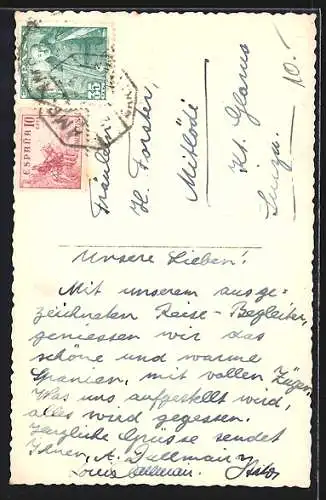 ESPAÑA 10
10.-
Fräulein
H. Forster,
Mitlödi
Kt. Glarus
Unsere Lieben!
Mit unserem ausge-
zeichneten Reise-Begleiter,
geniessen wir das
schöne und warme
Spanien, mit vollen Zügen.
Was uns aufgestellt wird,
alles wird gegessen.
Herzliche Grüsse sendet
Ihnen, A. Dallmair